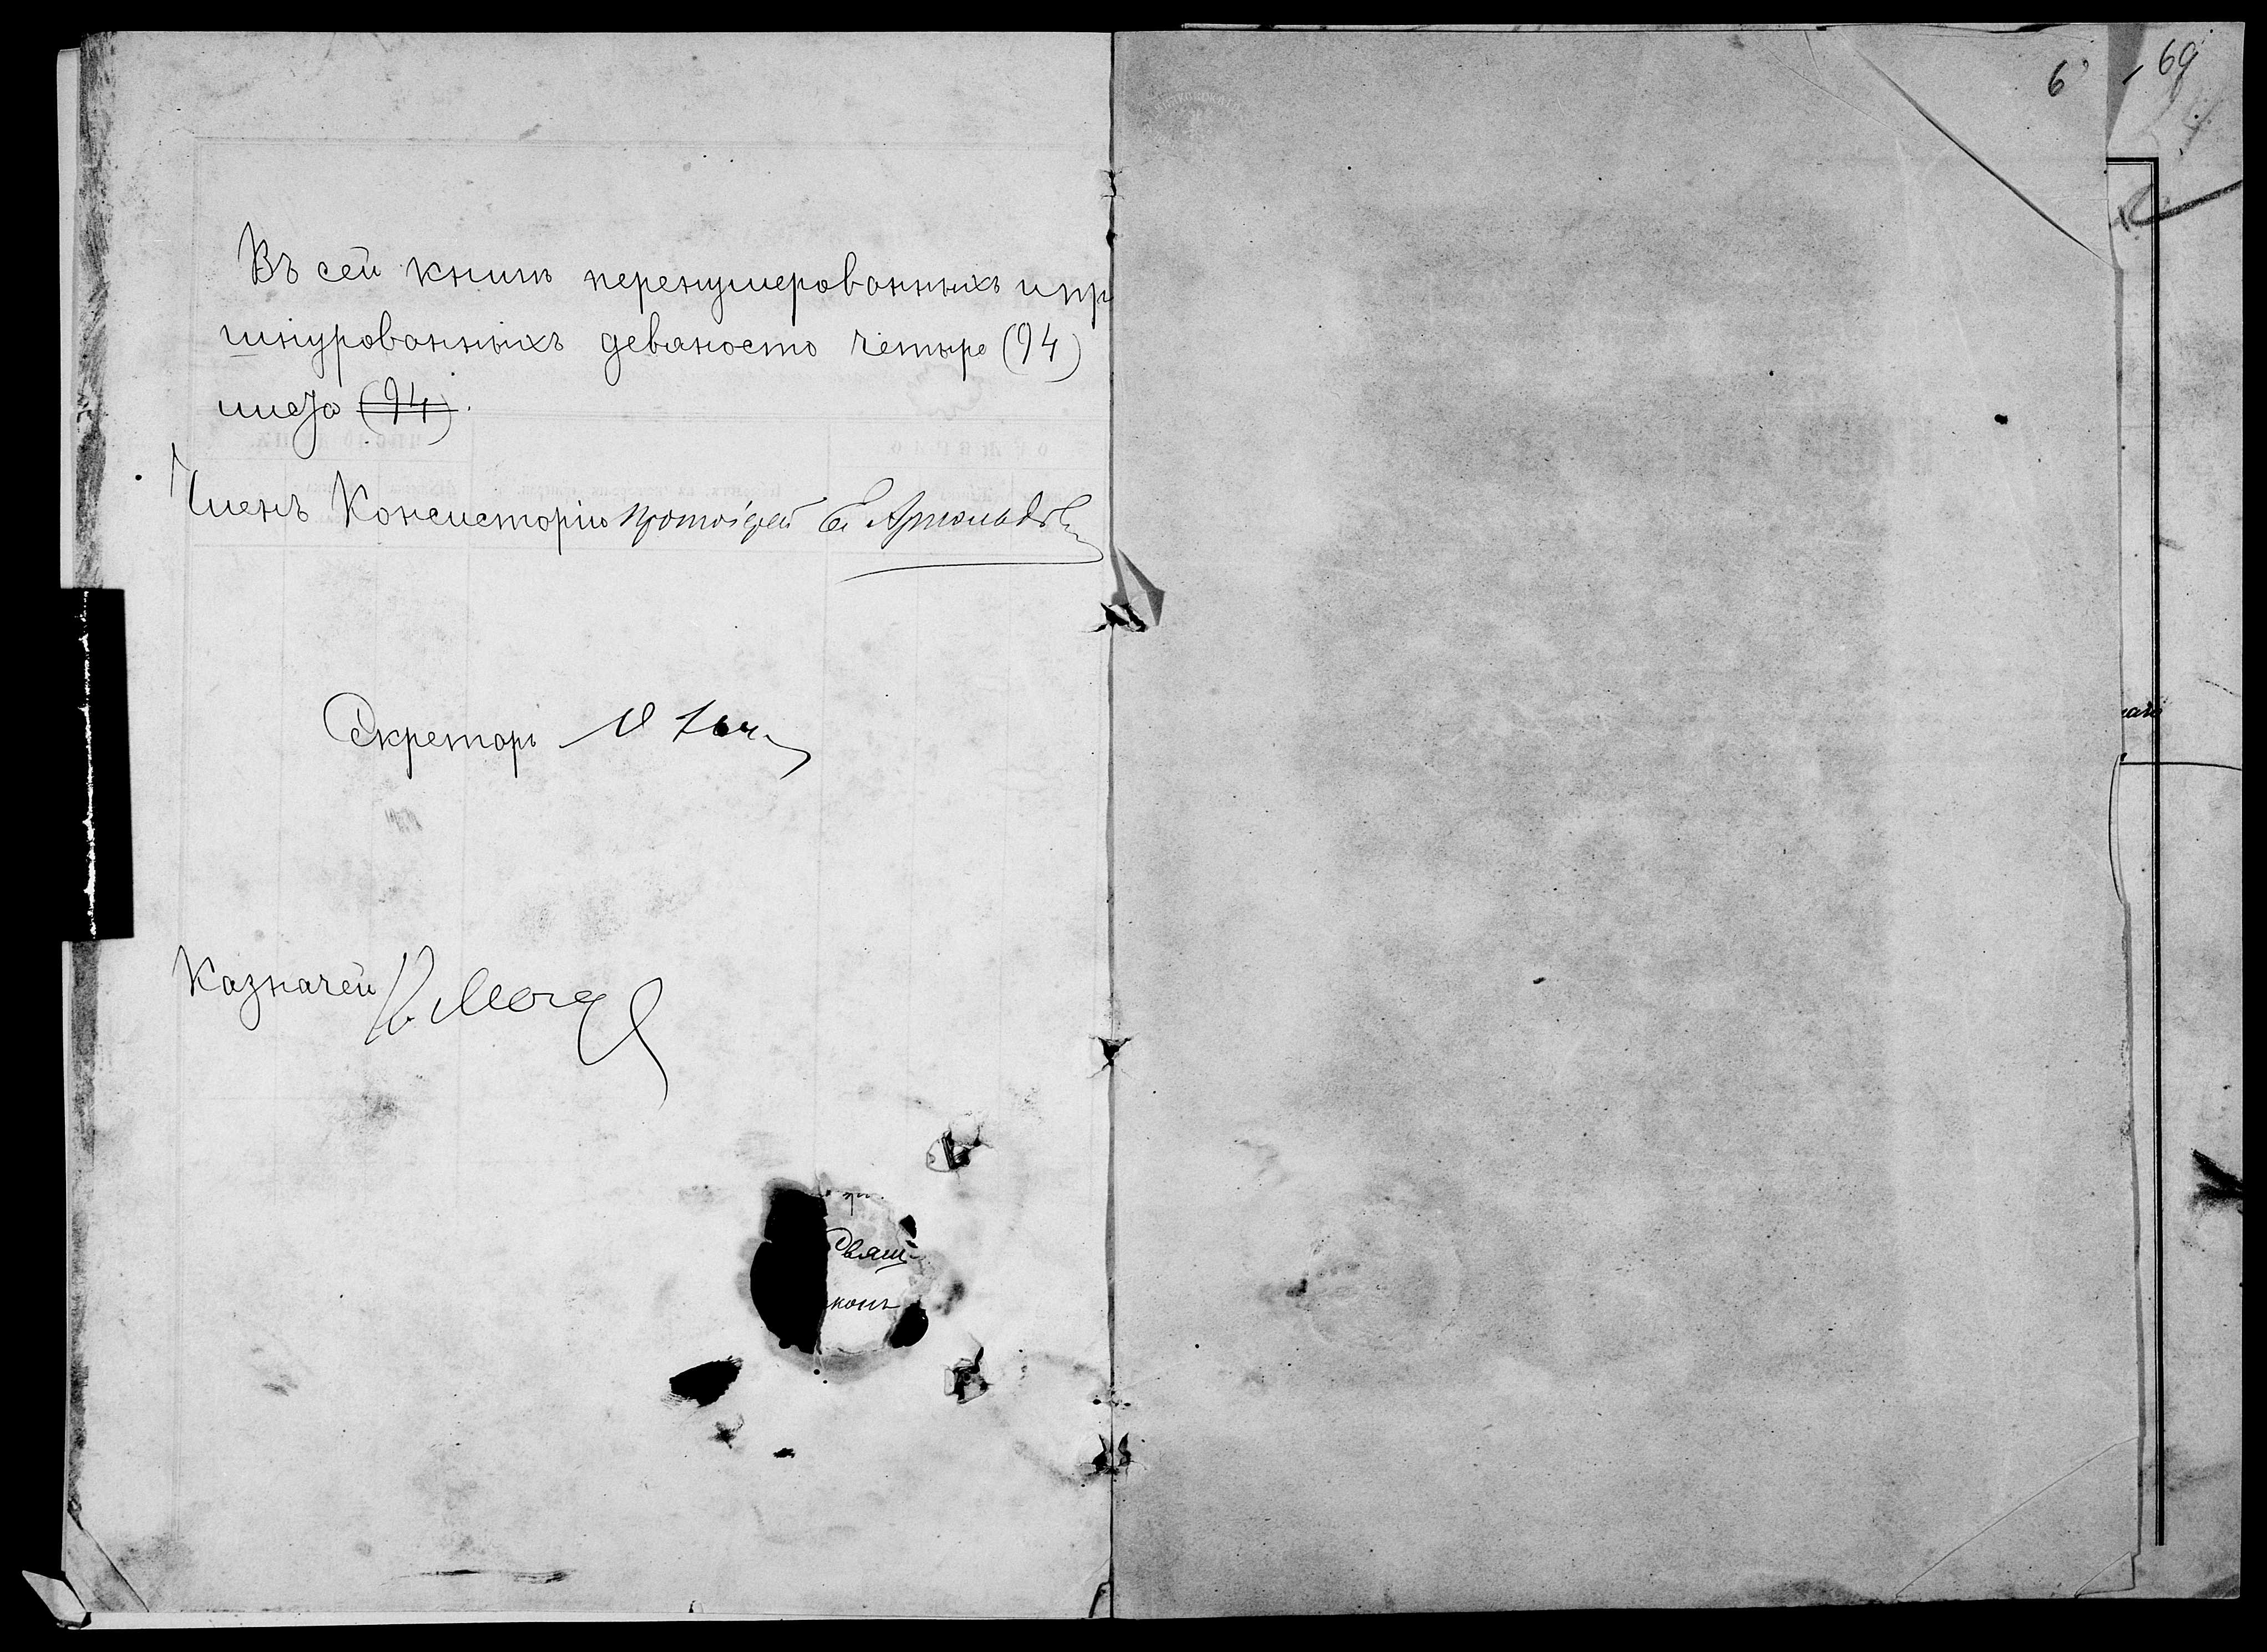 Въ сей книгѣ перенумерованныхъ и пр
шнурованныхъ девяносто четыре (94)
листа (94).
Членъ Консисторіи протоіерей
Секретарь
Казначей
Свящ
конъ
6
69